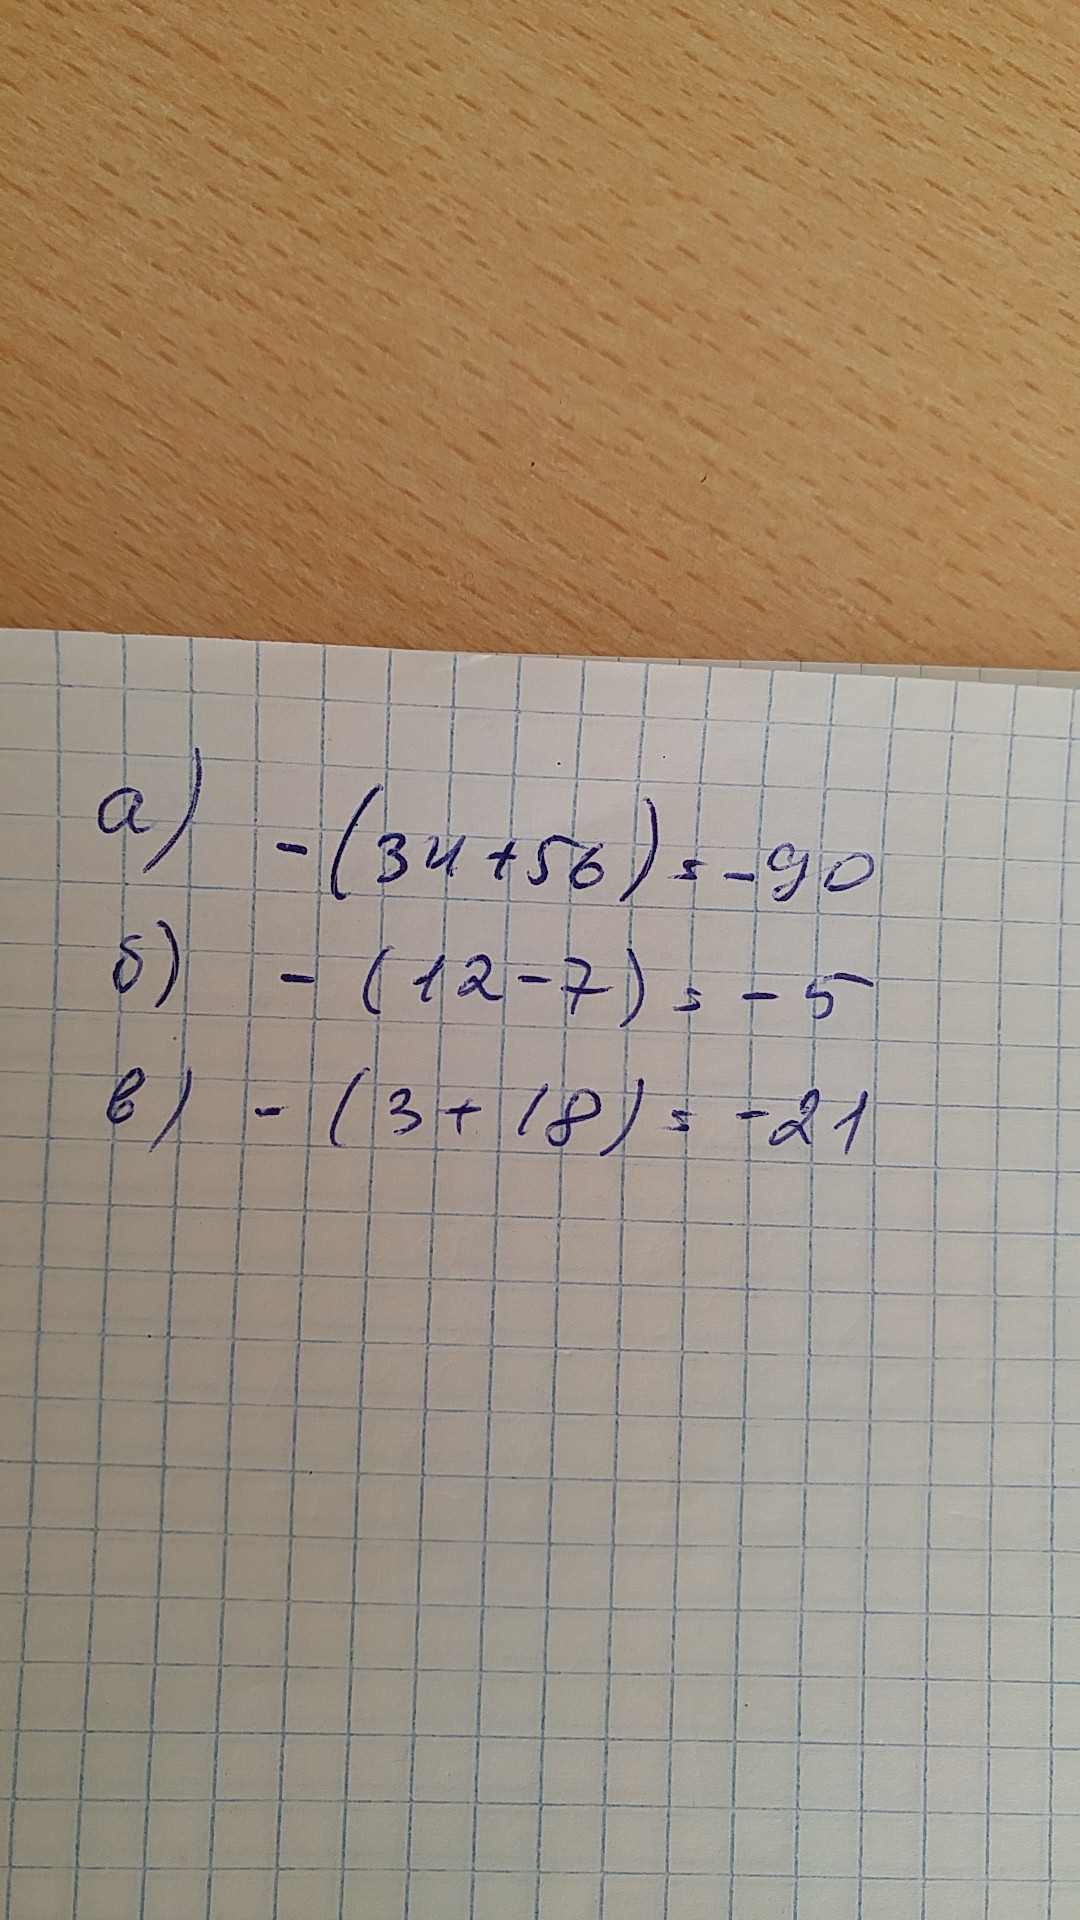 а) -(34+56)=-90
б) -(12-7)=-5
в) -(3+18)=-21